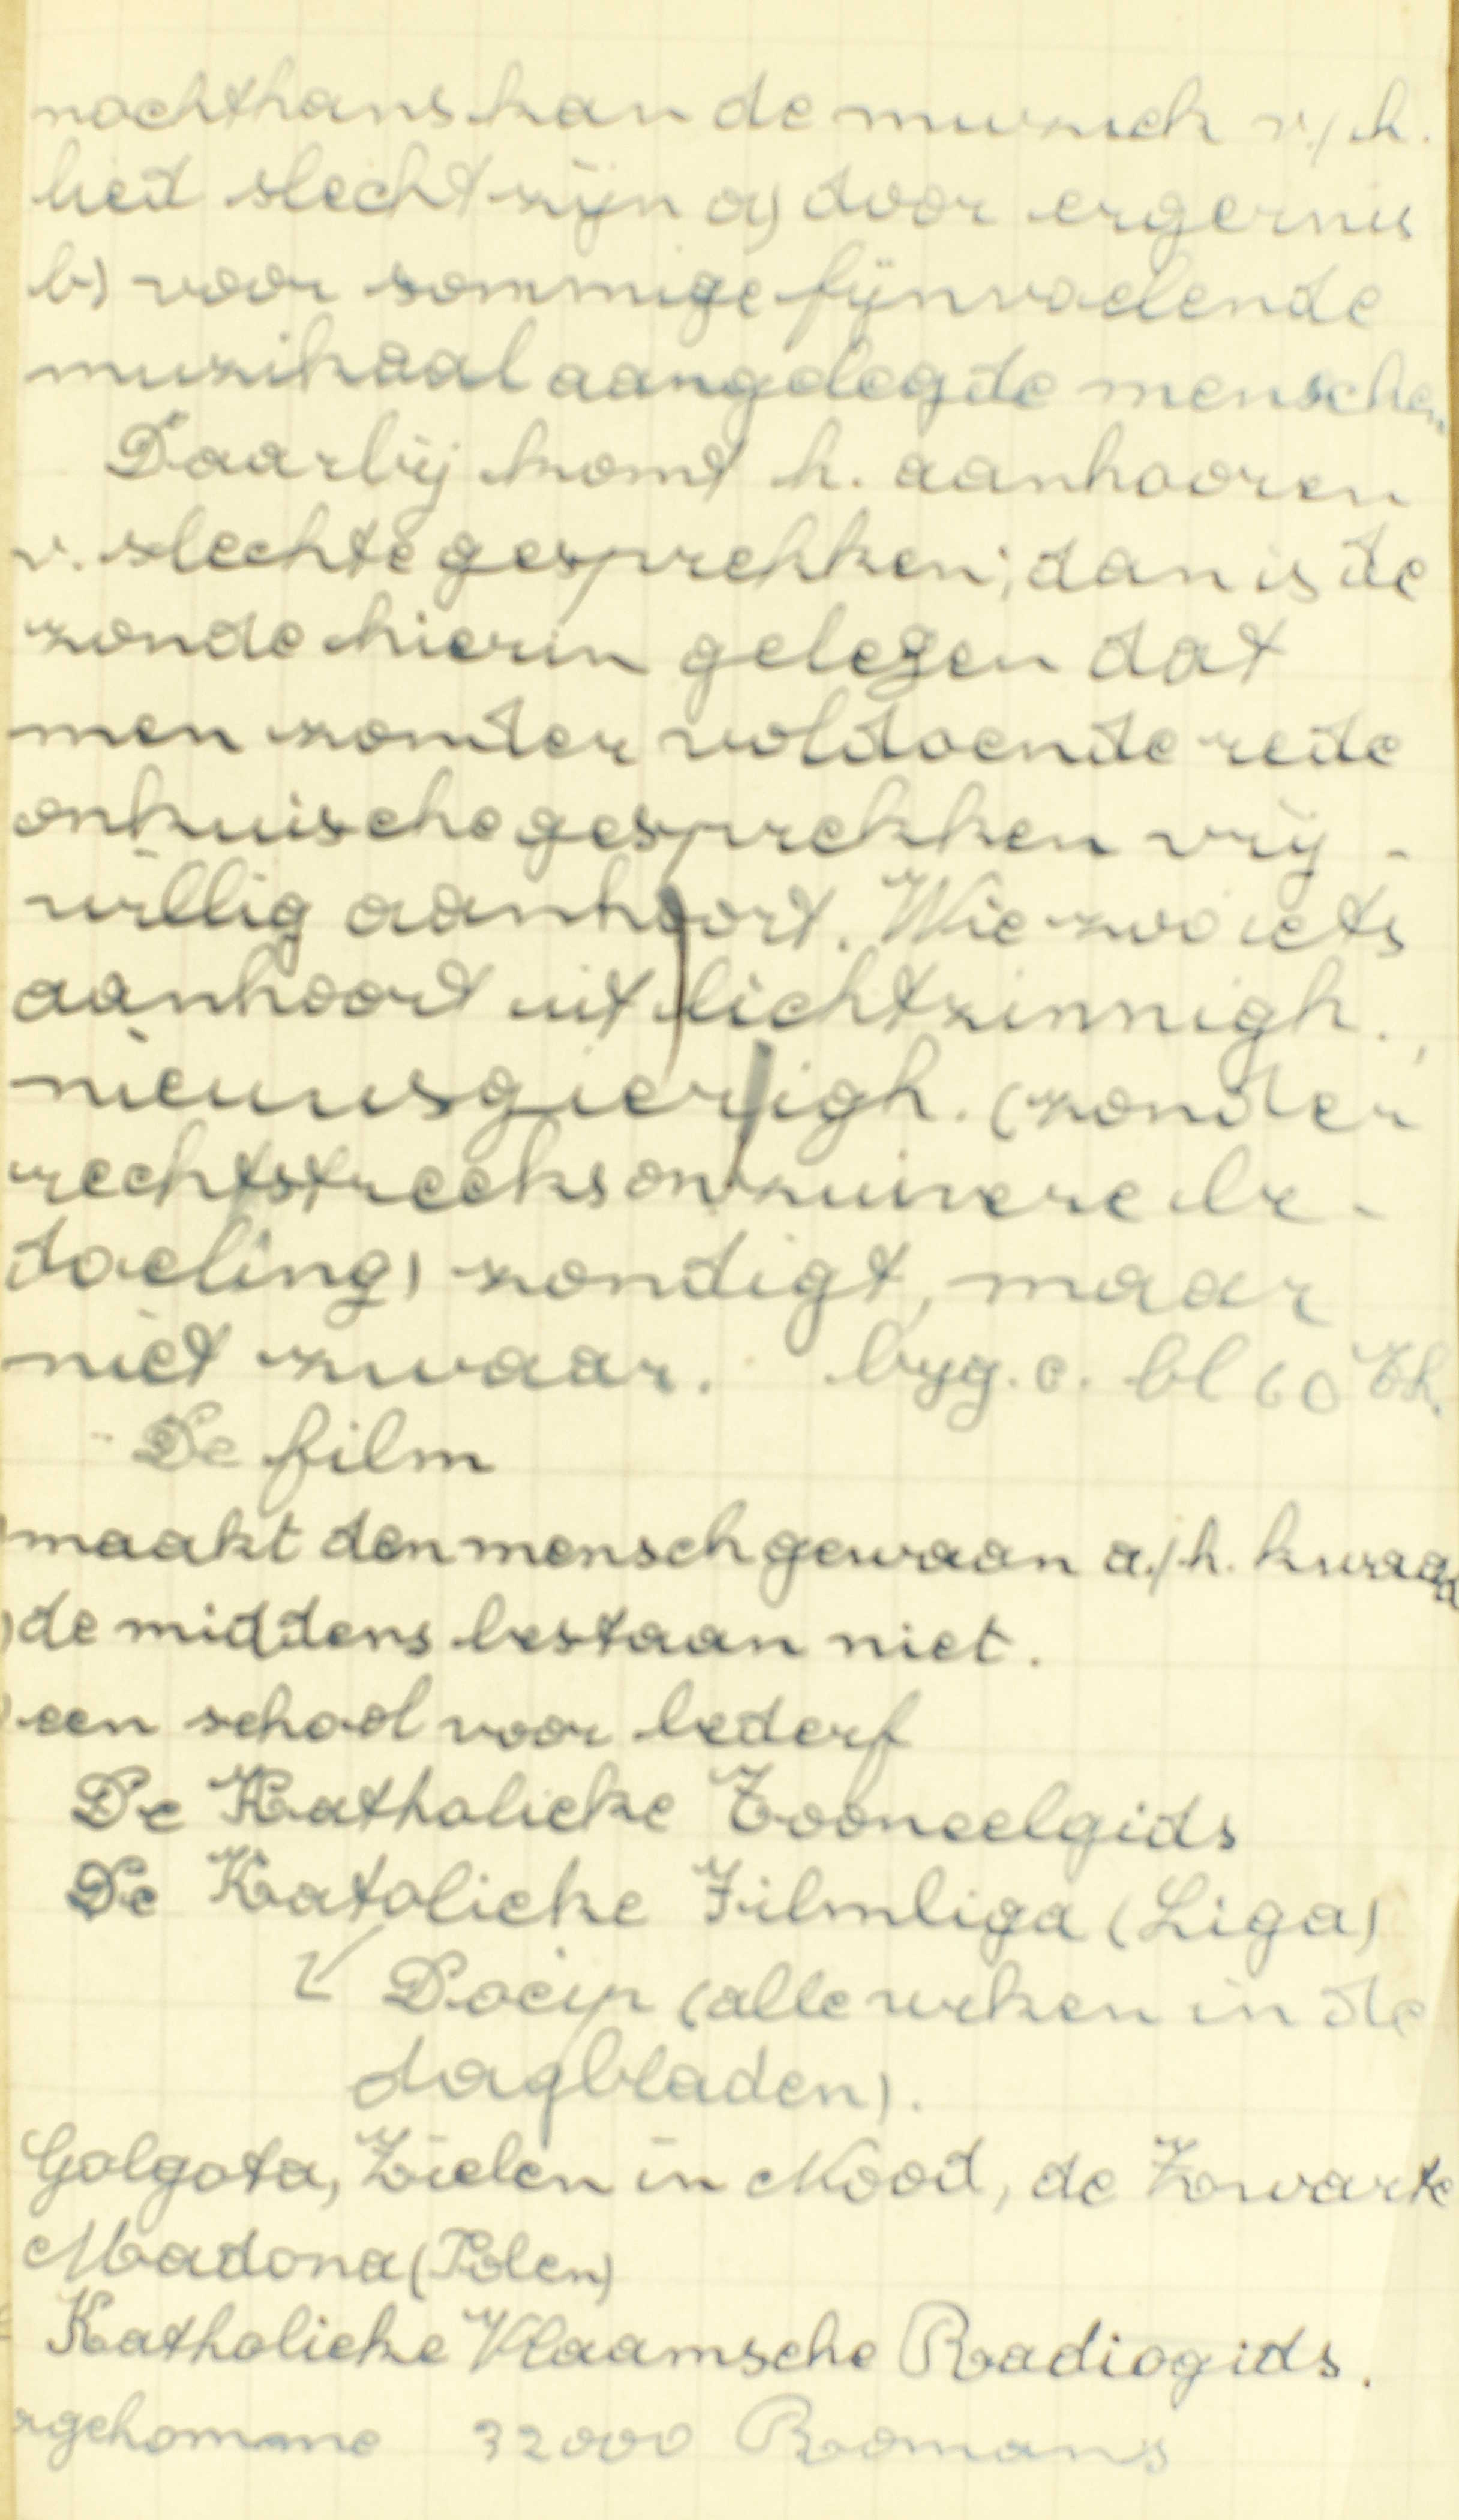 nochthans kan de muziek v/h.
lied slecht zijn a) door ergernis
b) voor sommige fijnvoelende
muzikaal aangelegde menschen
Daarbij komt h. aanhooren
v. slechte gesprekken; dan is de
zonde hierin gelegen dat
men zonder voldoende rede
onkuische gesprekken vrij-
willig aanhoort. Wie zoo iets
aanhoort uit lichtzinnigh.,
nieuwsgierigh. (zonder
rechtstreeks onzuivere be-
doeling) zondigt, maar
niet zwaar. byg. c. bl 60
- De film
maakt den mensch gewoon a/h. kwaad
) de middens bestaan niet.
) een school voor bederf
De Katholieke Tooneelgids
De Katolieke Filmliga (Liga)
Docip (alle weken in de
dagbladen).
Golgota, Zielen in Nood, de Zwarte
Madona (Polen)
Katholieke Vlaamsche Radiogids.
32000 Romans